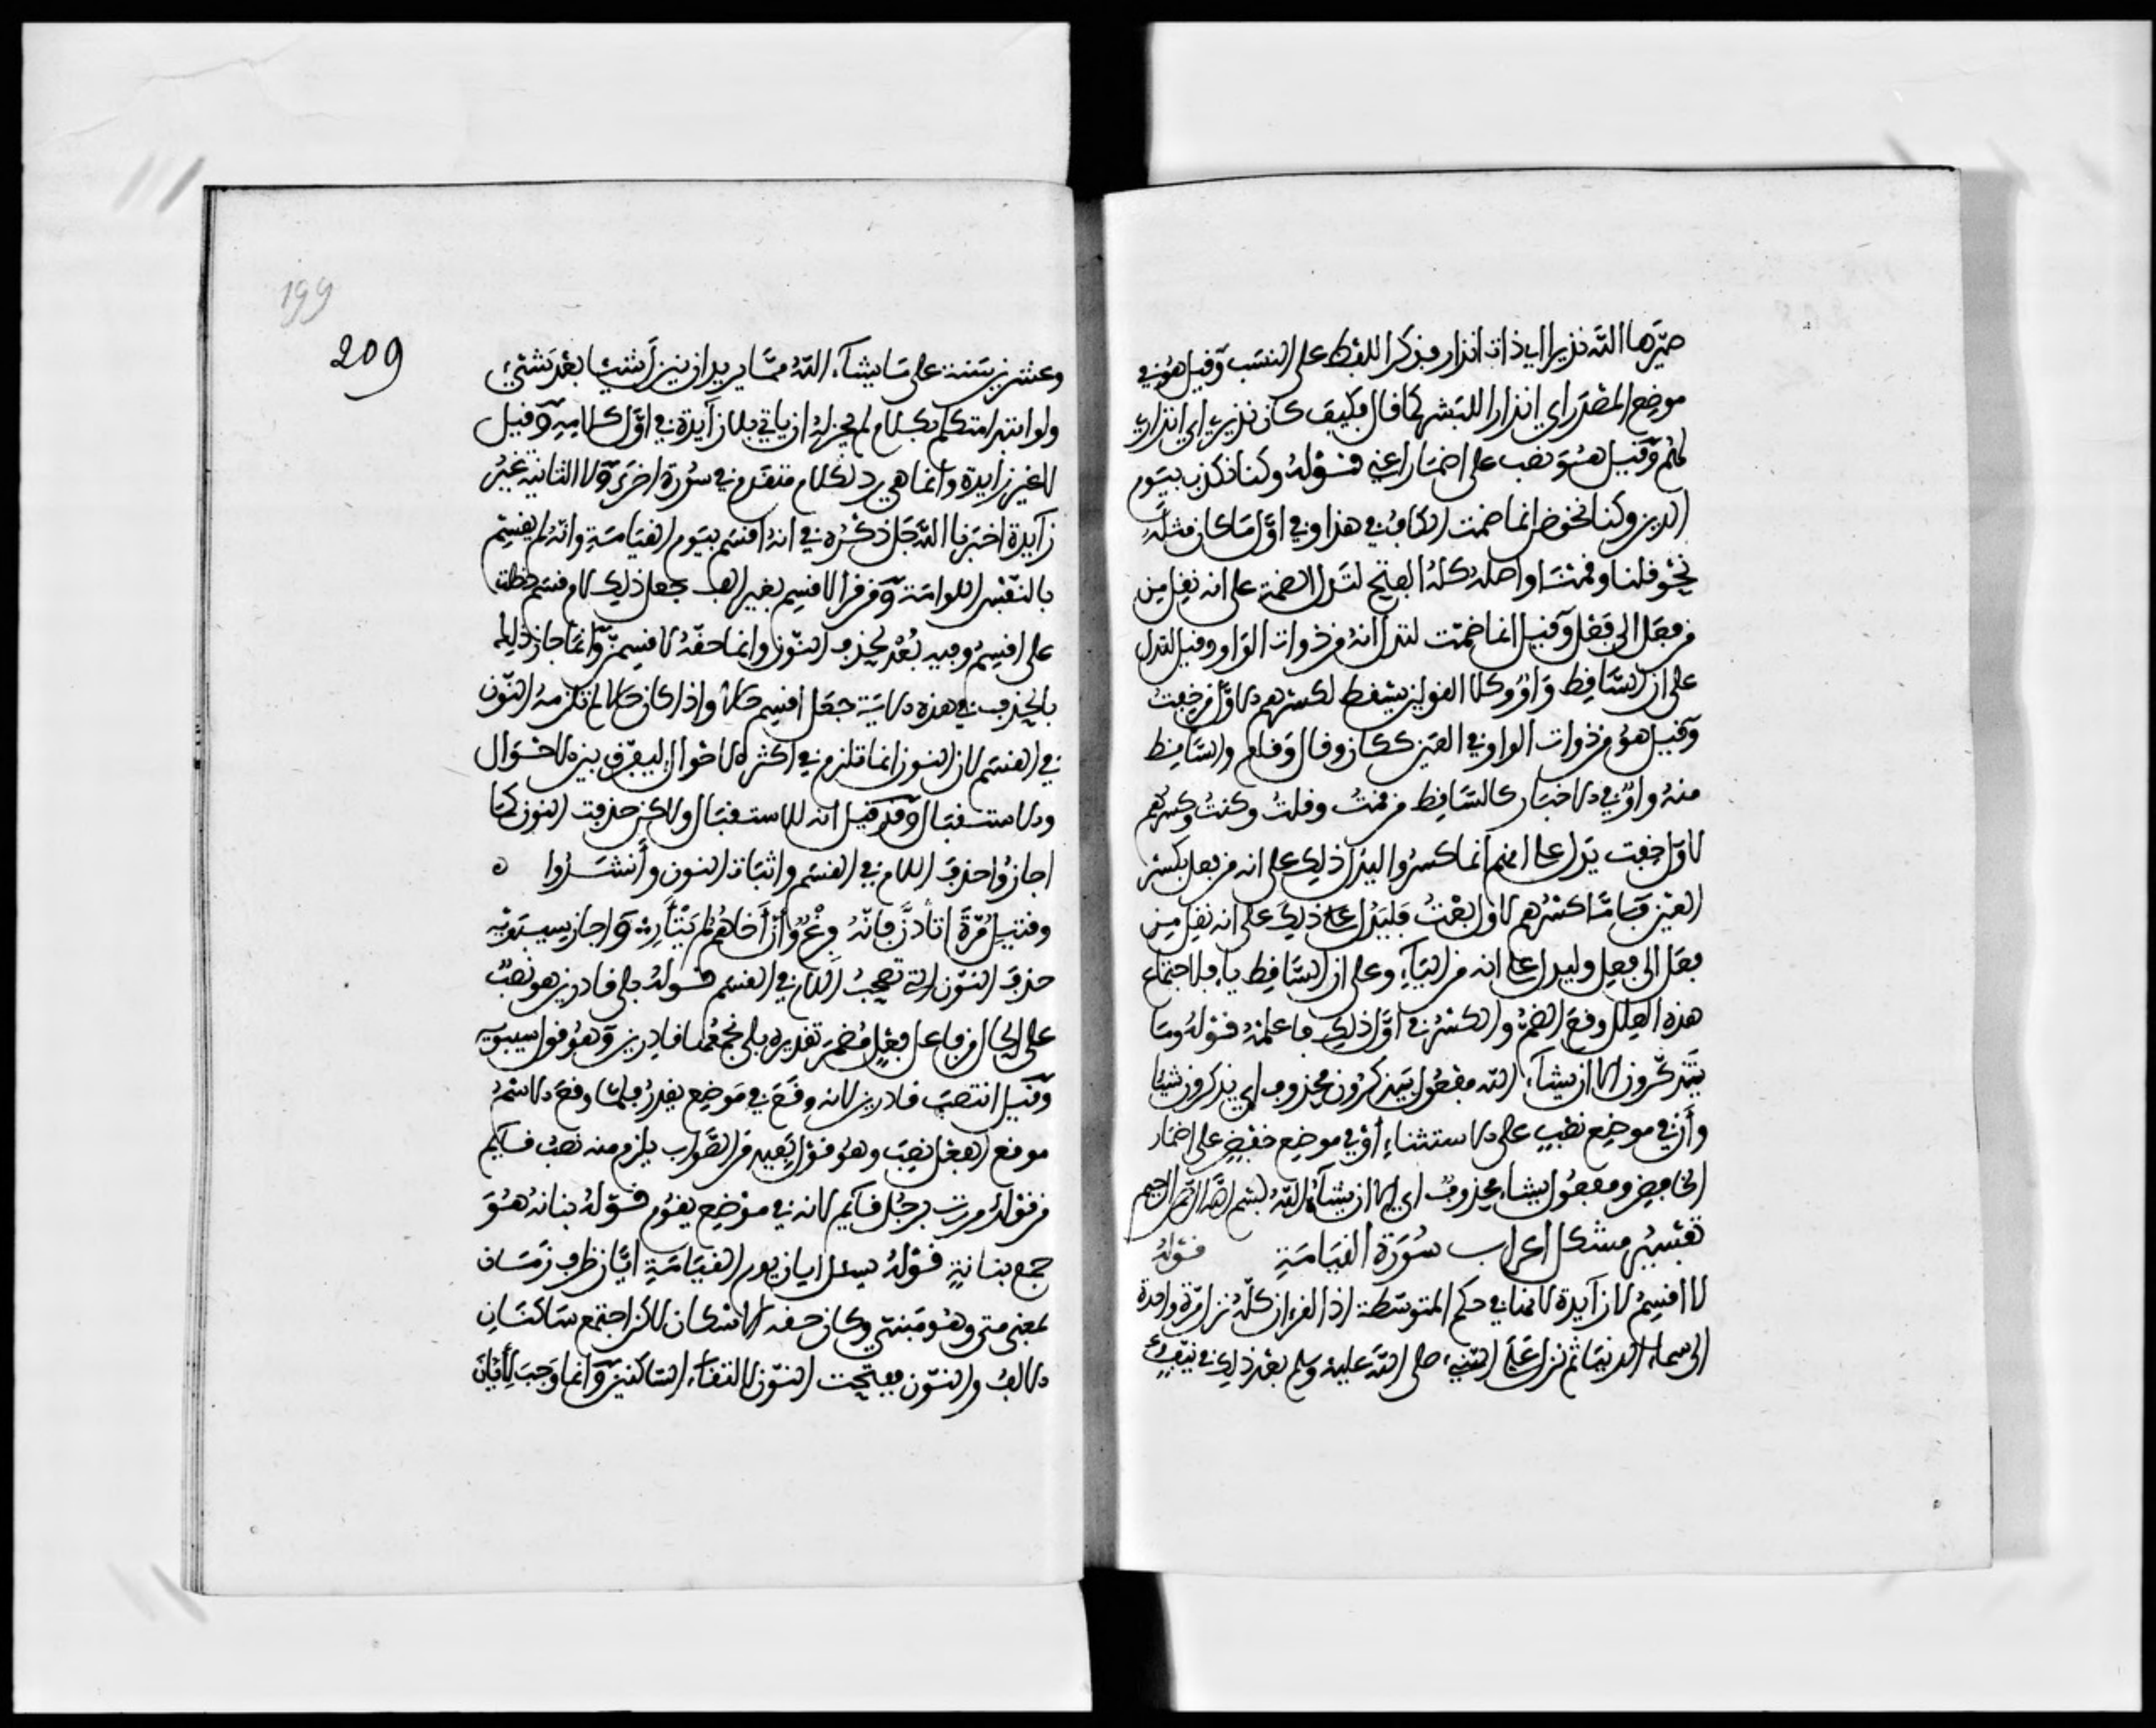 صيّرها الله نذيرا اي ذات انذار فذكر اللفظ على النسب وقيل هو في
موضع المصدر اي انذارا للبشر كما قال فكيف كان نذير اي انذاري
لهم وقيل هو نصب على اضمار اعني قوله وكنا نكذب بيوم
الدين وكنا نخوض انما ضمت الكاف في هذا وفي اول ما كان مثله
نحو قلنا وقمنا واصله كله الفتح لتدل الضمة على انه نقل من
فعل الى فعل وقيل انما ضمت لتدل انه من ذوات الواو وقيل لتدل
على ان الساقط واو وكلا القولين يسقط لكسرهم الاول من خفت
وقيل هو من ذوات الواو في العين ككان وقال وقام والساقط
منه واو في الاخبار كالساقط من قمت وقلت وكنت وكسرهم
لاول خفت يدل على انهم انما كسروا ليدل ذلك على انه من فعل بكسر
العين فاما كسرهم لاول بعت فليدل على ذلك على انه نقل من
فعل الى فعل وليدل على انه من الياء وعلى ان الساقط ياء فلاجتماع
هذه العلل وقع الضم والكسر في اول ذلك فاعلمه قوله وما
يذكرون الا ان يشاء الله مفعول يذكرون محذوف اي يذكرون شيئا
وأن في موضع نصب على الاستثناء أو في موضع خفض على اضمار
الخافض ومفعول يشاء محذوف اي الا ان يشاءه الله بسم الله الرحمن الرحيم
تفسير مشكل اعراب سورة القيامة قوله
لا اقسم لا زايدة لانها في حكم المتوسطة اذ القرءان كله نزل مرة واحدة
الى سماء الدنيا ثم نزل على النبيء صلى الله عليه وسلم بعد ذلك في نيف
209
199
وعشرين سنة على ما يشاء الله مما يريد ان ينزل شيئا بعد شيء
ولو ابتدا متكلم بكلام لم يجز له ان ياتي بلا زايدة في اول كلامه وقيل
لا غير زايدة وانما هي رد لكلام متقدم في سورة اخرى ولا الثانية غير
زايدة اخبرنا الله جل ذكره في انه اقسم بيوم القيامة وانه لم يقسم
بالنفس اللوامة ومن قرا لاقسم بغير الف جعل ذلك لام قسم دخلت
على اقسم وفيه بعد لحذف النون وانما حقه لاقسمن وانما جاز ذلك
بالحذف في هذه الاية جعل اقسم حالا واذا كان حالا لم تلزمه النون
في القسم لان النون انما تلزم في اكثر الاحوال ليفرق بين الاحوال
والاستقبال وقد قيل انه للاستقبال ولاكن حذفت النون كما
اجازوا حذف اللام في القسم واثبات النون وأنشدوا ه
وقتيل مرة اثأرن فانه فرغ وأن أخاهم لم يثأر واجاز سيبويه
حذف النون التي تصحب اللام في القسم قوله بلى قادرين هو نصب
على الحال من فاعل فعل مضمر تقديره بلى نجمعها قادرين وهو قول سيبويه
وقيل انتصب قادرين لانه وقع في موضع يقدر فلما وقع الاسم
موضع الفعل نصب وهو قول بعيد من الصواب يلزم منه نصب قايم
من قولك مررت برجل قايم لانه في موضع يقوم قوله بنانه هو
جمع بنانة قوله يسئل ايان يوم القيامة ايان ظرف زمان
بمعنى متى وهو مبني وكان حقه الاسكان لاكن اجتمع ساكنان
الالف والنون ففتحت النون لالتقاء الساكنين وانما وجب لأيان